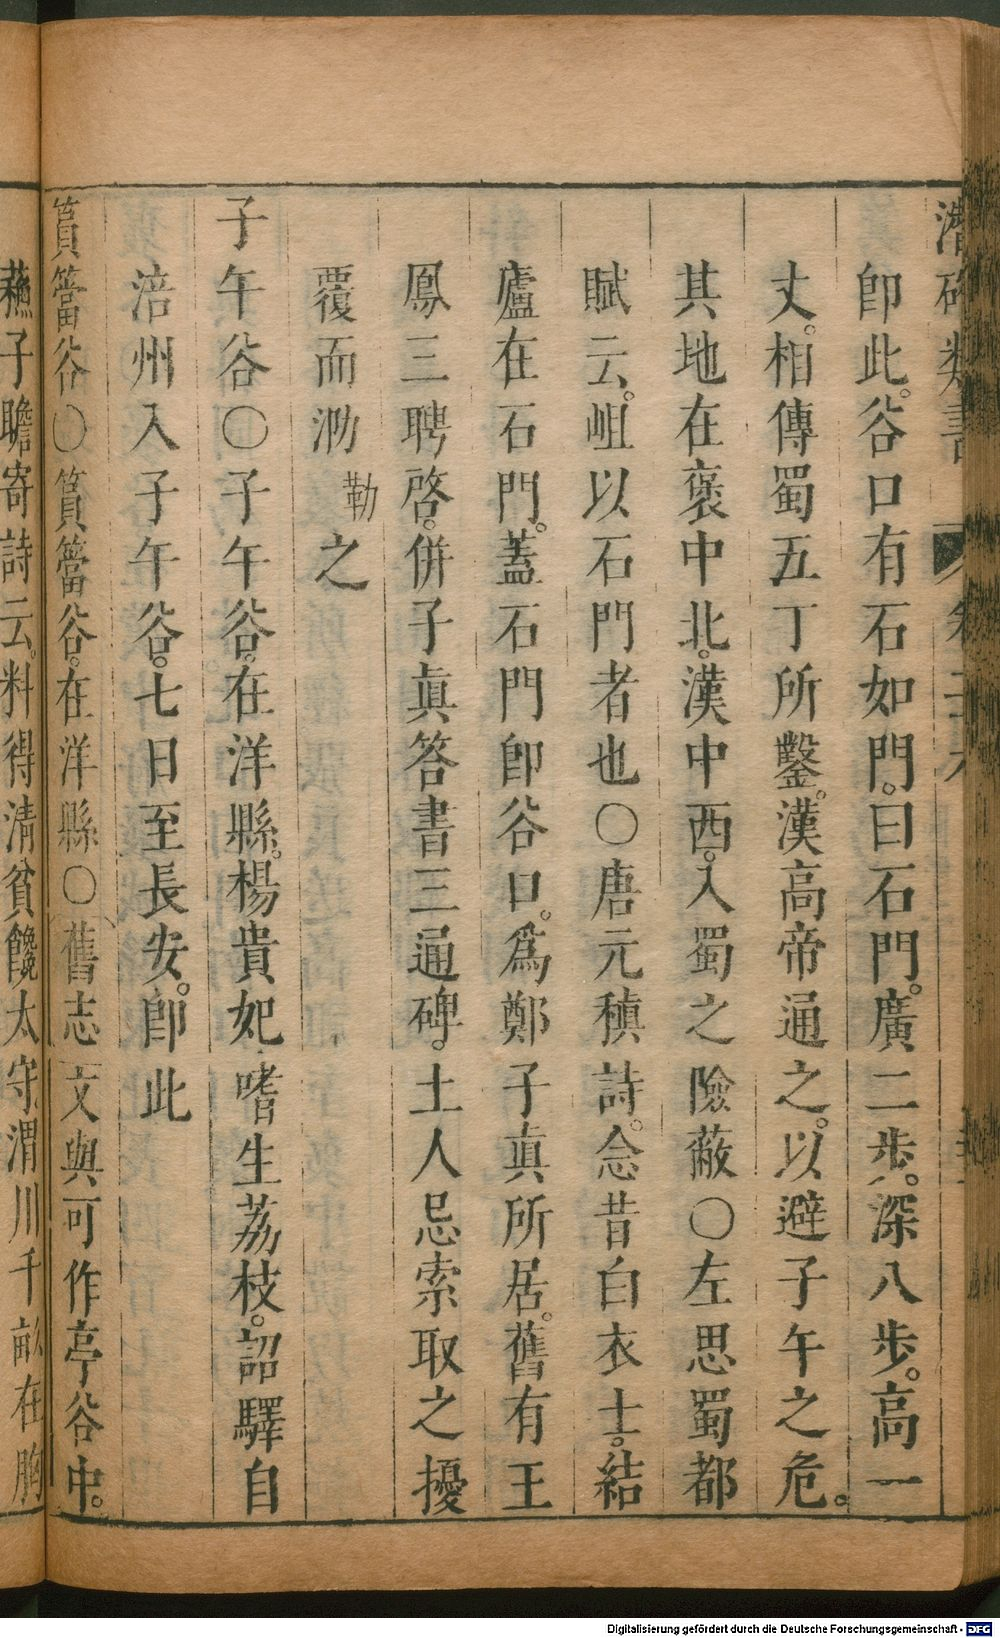 潛確類書 卷二十八
卽此。谷口有石如門。曰石門。廣二步。深八步。高一
丈。相傳蜀五丁所鑿。漢高帝通之。以避子午之危。
其地在褒中北。漢中西。入蜀之險蔽〇左思蜀都
賦云。岨以石門者也〇唐元稹詩。念昔白衣士。結
廬在石門。蓋石門卽谷口。爲鄭子眞所居。舊有王
鳳三聘啓。併子眞答書三通碑。土人忌索取之擾
覆而泐勒之
子午谷〇子午谷。在洋縣。楊貴妃嗜生荔枝。詔驛自
涪州入子午谷。七日至長安。卽此
篔簹谷〇篔簹谷。在洋縣〇舊志文與可作亭谷中。
蘇子瞻寄詩云。料得清貧饞太守。渭川千畝在胸
Digitalisierung gefördert durch die Deutsche Forschungsgemeinschaft - DFG